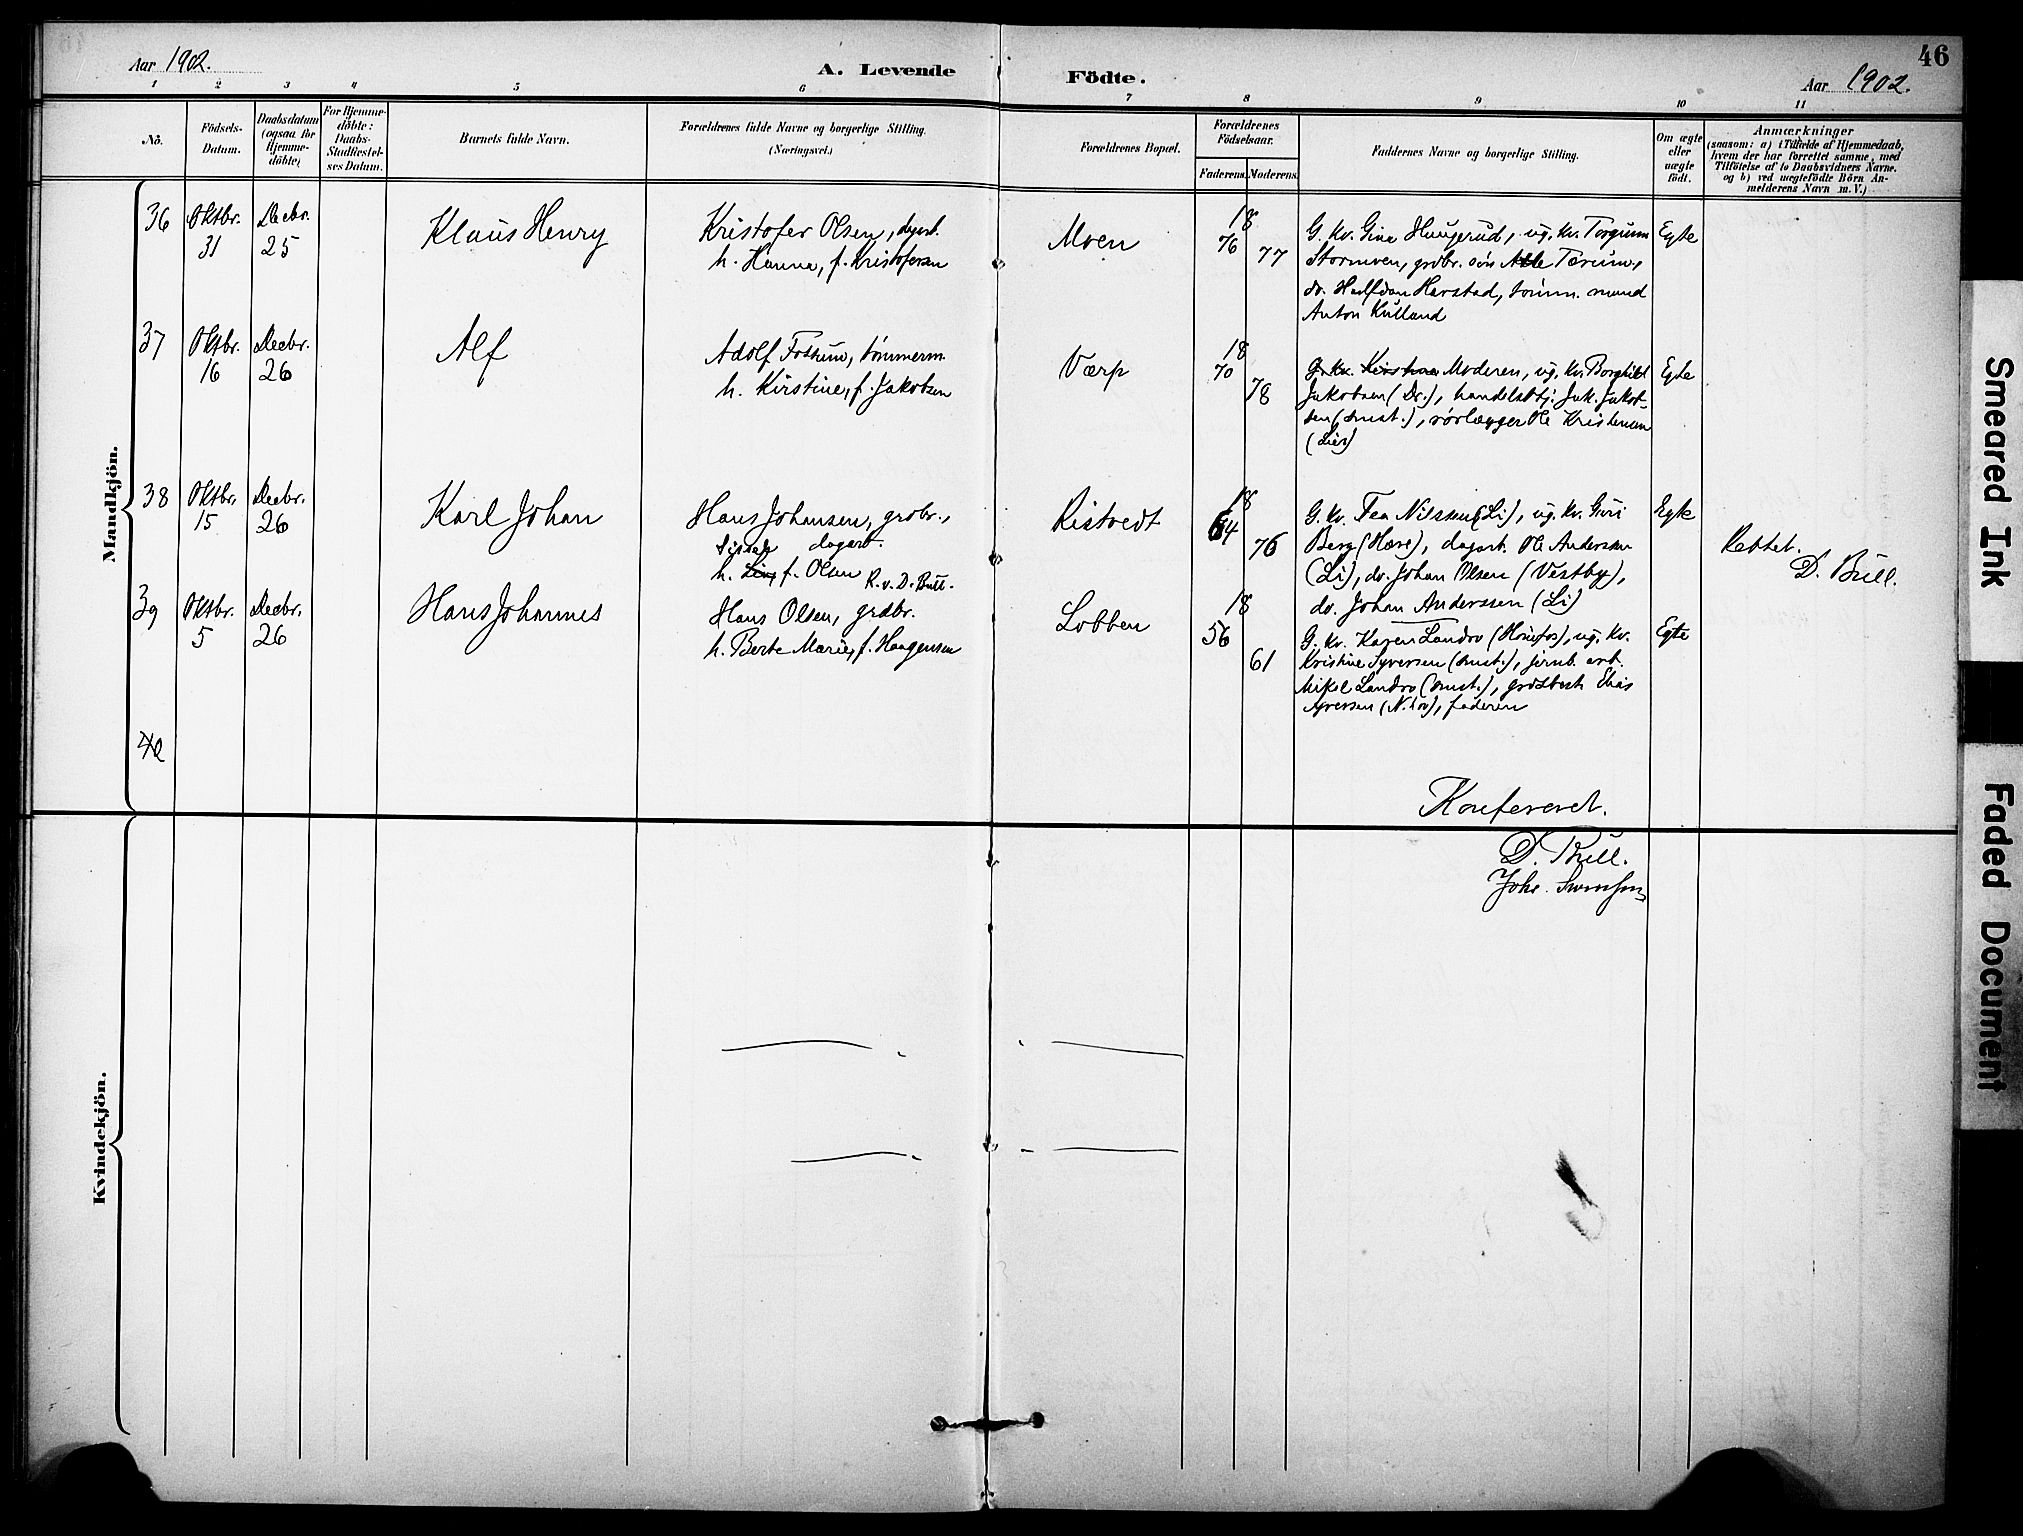 46
Aar 1902.
A. Levende Födte.
Aar 1902.
1 2 3 4 5 6 7 8 9 10 11
No.
Födsels-
Datum.
Daabsdatum
(ogsaa for
Hjemme-
döbte)
For Hjemme-
döbte:
Daabs-
Stadfæstel-
ses Datum.
Barnets fulde Navn.
Forældrenes fulde Navne og borgerlige Stilling.
(Næringsvei.)
Forældrenes Bopæl.
Forældrenes
Födselsaar.
Faderens. Moderens.
Faddernes Navne og borgerlige Stilling.
Om ægte
eller
uægte
födt.
Anmærkninger
(saasom: a) i Tilfælde af Hjemmedaab,
hvem der har forrettet samme, med
Tilföielse af to Daabsvidners Navne.
og b) ved uægtefödte Börn An-
melderens Navn m. V.)
Mandkjön.
36
Oktbr.
31
Decbr.
25
Klaus Henry
Kristofer Olsen, dagarb.
h. Hanna, f. Kristofersen
Moen
18
76
77
G. kv. Gina Haugerud, ug. kv. Torgunn
Stormoen, grdbr. sön Atle Tærum,
do. Halfdan Harstad, tömm. mand
Anton Kulland
Egte
37
Oktbr.
16
Decbr.
26
Alf
Adolf Fossum, tömmerm.
h. Kirstine, f. Jakobsen
Værp
18
70
78
G. kv. Kirstine Moderen, ug. kv. Borghild
Jakobsen (Dr.), handelsbtj. Jak. Jakob-
sen (smst.), rörlægger Ole Kristensen
(Lier)
Egte
38
Oktbr.
15
Decbr.
26
Karl Johan
Hans Johansen, grdbr.,
Sissel dagarb.
h. f. Olsen R. v. D. Bull.
Ristvedt
18
64
76
G. kv. Tea Nilssen (Li), ug. kv. Guri
Berg (Hære), dagarb. Ole Anderssen
(Li), do. Johan Olsen (Vestby),
do. Johan Anderssen (Li)
Egte
Rettet.
D. Bull.
39
Oktbr.
5
Decbr.
26
Hans Johannes
Hans Olsen, grdbr.
h. Berte Marie, f. Haagensen
Lobben
18
56
61
G. kv. Karen Landrø (Hönefos), ug. kv.
Kristine Syversen (smst.), jernb. arb.
Mikel Landrø (smst.), grdbest. Elias
Syversen, faderen
Egte
40
Konfereret.
D. Bull.
Johs.
Kvindekjön.
Smeared Ink
Faded Document